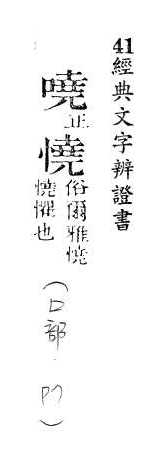 41 經典文字辨證書
嘵 正
憢 俗爾雅憢
憢懼也
(口部 · P7)